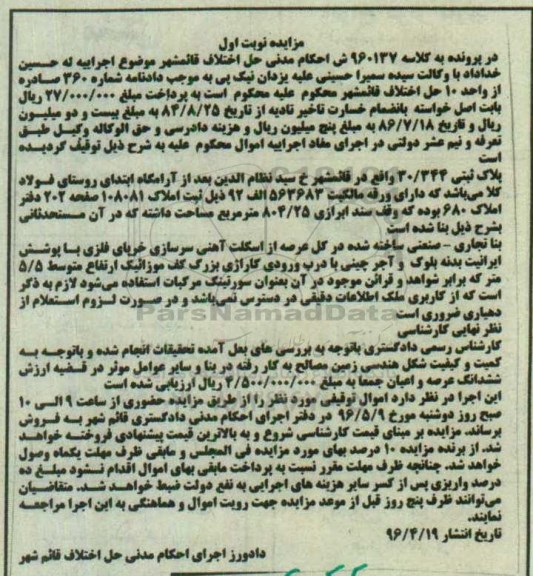 مزایده نوبت اول
در پرونده به کلاسه ۹۶۰۱۳۷ ش احکام مدنی حل اختلاف قائمشهر موضوع اجراییه له حسین
خداداد با وکالت سیده سمیرا حسینی علیه یزدان نیک پی به موجب دادنامه شماره ۳۶۰ صادره
از واحد ۱۰ حل اختلاف قائمشهر محکوم علیه محکوم است به پرداخت مبلغ ۲۷/۰۰۰/۰۰۰ ریال
بابت اصل خواسته بانضمام خسارت تاخیر تادیه از تاریخ ۸۴/۸/۲۵ به مبلغ بیست و دو میلیون
ریال و تاریخ ۸۶/۷/۱۸ به مبلغ پنج میلیون ریال و هزینه دادرسی و حق الوکاله وکیل طبق
تعرفه و نیم عشر دولتی در اجرای مفاد اجراییه اموال محکوم علیه به شرح ذیل توقیف گردیده
است
پلاک ثبتی ۳۰/۳۴۴ واقع در قائمشهر خ سید نظام الدین بعد از آرامگاه ابتدای روستای فولاد
کلا می‌باشد که دارای ورقه مالکیت ۵۶۳۶۸۳ الف ۹۲ ذیل ثبت املاک ۱۰۸۰۸۱ صفحه ۲۰۲ دفتر
املاک ۶۸۰ بوده که وفق سند ابرازی ۸۰۴/۲۵ مترمربع مساحت داشته که در آن مستحدثاتی
بشرح ذیل بنا شده است
بنا تجاری - صنعتی ساخته شده در کل عرصه از اسکلت آهنی سرسازی خرپای فلزی با پوشش
ایرانیت بدنه بلوک و آجر چینی با درب ورودی کاراژی بزرگ کف موزائیک ارتفاع متوسط ۵/۵
متر که برابر شواهد و قرائن موجود در آن بعنوان سورتینگ مرکبات استفاده می‌شود لازم به ذکر
است که از کاربری ملک اطلاعات دقیقی در دسترس نمی‌باشد و در صورت لزوم استعلام از
دهیاری ضروری است
ParsNamadData
نظر نهایی کارشناسی
کارشناس رسمی دادگستری باتوجه به بررسی های بعل آمده تحقیقات انجام شده و باتوجه به
کمیت و کیفیت شکل هندسی زمین مصالح به کار رفته در بنا و سایر عوامل موثر در قضیه ارزش
ششدانگ عرصه و اعیان جمعا به مبلغ ۴/۵۰۰/۰۰۰/۰۰۰ ریال ارزیابی شده است
این اجرا در نظر دارد اموال توقیفی مورد نظر را از طریق مزایده حضوری از ساعت ۹ الی ۱۰
صبح روز دوشنبه مورخ ۹۶/۵/۹ در دفتر اجرای احکام مدنی دادگستری قائم شهر به فروش
برساند. مزایده بر مبنای قیمت کارشناسی شروع و به بالاترین قیمت پیشنهادی فروخته خواهد
شد. از برنده مزایده ۱۰ درصد بهای مورد مزایده فی المجلس و مابقی ظرف مهلت یکماه وصول
خواهد شد. چنانچه ظرف مهلت مقرر نسبت به پرداخت مابقی بهای اموال اقدام نشود مبلغ ده
درصد واریزی پس از کسر سایر هزینه های اجرایی به نفع دولت ضبط خواهد شد. متقاضیان
می‌توانند ظرف پنج روز قبل از موعد مزایده جهت رویت اموال و هماهنگی به این اجرا مراجعه
نمایند.
تاریخ انتشار ۹۶/۴/۱۹
دادورز اجرای احکام مدنی حل اختلاف قائم شهر